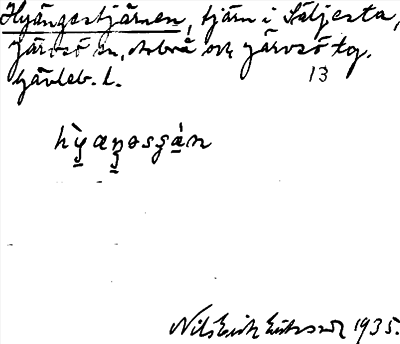 Hyängestjärnen, tjärn i Säljesta,
Järvsö sn, och Järvsö tg.
Gävleb. l. 13
Nils Erik Eriksson 1935.